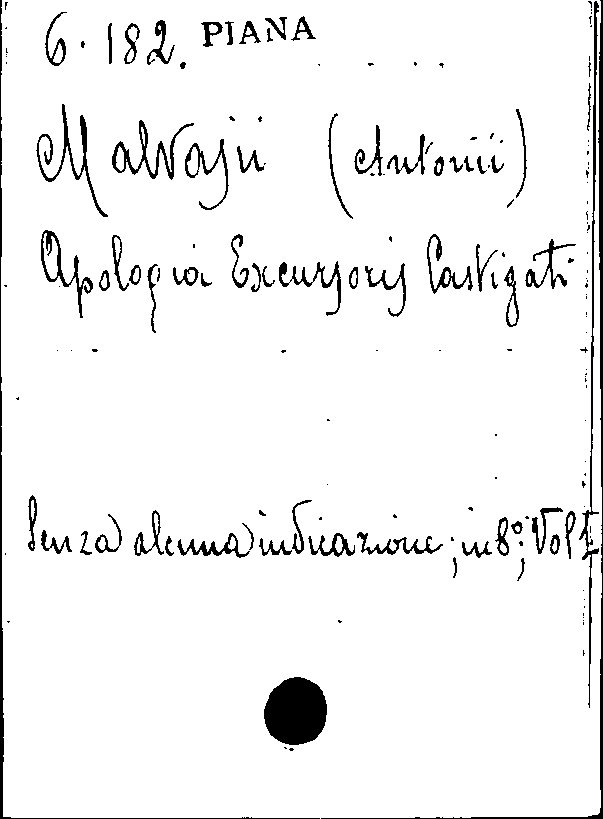 6.182. PIANA
Malvasii (Antonii)
Apologia Excursoris Castigati
Senza alcuna indicazione; in 8º; Vol 1